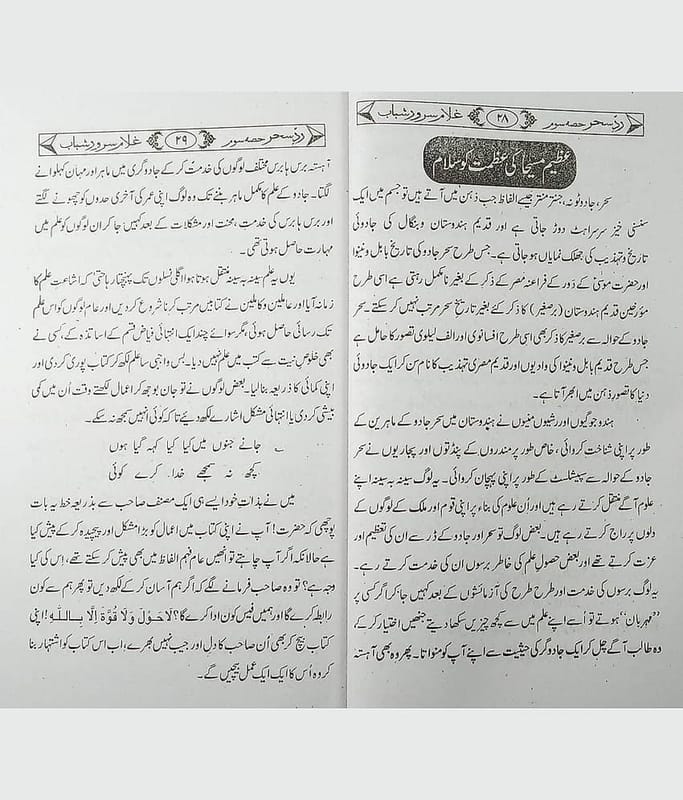 ردِّ سحر حصہ سوم ۲۸ غلام سرور شباب
عظیم مسیحا کی عظمت کو سلام
سحر، جادو ٹونہ، جنتر منتر جیسے الفاظ جب ذہن میں آتے ہیں تو جسم میں ایک
سنسنی خیز سرسراہٹ دوڑ جاتی ہے اور قدیم ہندوستان و بنگال کی جادوئی
تاریخ و تہذیب کی جھلک نمایاں ہو جاتی ہے۔ جس طرح سحر جادو کی تاریخ بابل و نینوا
اور حضرت موسیٰؑ کے دور کے فراعنہ مصر کے ذکر کے بغیر نامکمل رہتی ہے اسی طرح
مؤرخین قدیم ہندوستان (برصغیر) کا ذکر کئے بغیر تاریخ سحر مرتب نہیں کر سکتے۔ سحر
جادو کے حوالہ سے برصغیر کا ذکر بھی اسی طرح افسانوی اور الف لیلوی تصور کا حامل ہے
جس طرح قدیم بابل و نینوا کی وادیوں اور قدیم مصری تہذیب کا نام سن کر ایک جادوئی
دنیا کا تصور ذہن میں ابھر آتا ہے۔
ہندو جوگیوں اور رشیوں منیوں نے ہندوستان میں سحر جادو کے ماہرین کے
طور پر اپنی شناخت کروائی، خاص طور پر مندروں کے پنڈتوں اور پجاریوں نے سحر
جادو کے حوالہ سے سپیشلسٹ کے طور پر اپنی پہچان کروائی۔ یہ لوگ سینہ بہ سینہ اپنے
علوم آگے منتقل کرتے رہے ہیں اور اُن علوم کی بناء پر اپنی قوم اور ملک کے لوگوں کے
دلوں پر راج کرتے رہے ہیں۔ بعض لوگ تو سحر اور جادو کے ڈر سے ان کی تعظیم اور
عزت کرتے تھے اور بعض حصول علم کی خاطر برسوں ان کی خدمت کرتے رہے۔
یہ لوگ برسوں کی خدمت اور طرح طرح کی آزمائشوں کے بعد کہیں جا کر اگر کسی پر
”مہربان“ ہوتے تو اُسے اپنے علم میں سے کچھ چیزیں سکھا دیتے جنھیں اختیار کر کے،
وہ طالب آگے چل کر ایک جادوگر کی حیثیت سے اپنے آپ کو منواتا۔ پھر وہ بھی آہستہ
ردِّ سحر حصہ سوم ۲۹ غلام سرور شباب
آہستہ برس ہا برس مختلف لوگوں کی خدمت کر کے جادوگری میں ماہر اور مہان کہلوانے
لگتا۔ جادو کے علم کا مکمل ماہر بننے تک وہ لوگ اپنی عمر کی آخری حدوں کو چھونے لگتے
اور برس ہا برس کی خدمت، محنت اور مشکلات کے بعد کہیں جا کر ان لوگوں کو علم میں
مہارت حاصل ہوتی تھی۔
یوں یہ علم سینہ بہ سینہ منتقل ہوتا ہوا اگلی نسلوں تک پہنچتا رہا حتیٰ کہ اشاعت علم کا
زمانہ آیا اور عاملین و کاملین نے کتابیں مرتب کرنا شروع کر دیں اور عام لوگوں کو اس علم
تک رسائی حاصل ہوئی، مگر سوائے چند ایک انتہائی فیاض قسم کے اساتذہ کے، کسی نے
بھی خلوصِ نیت سے کتب میں علم نہیں دیا۔ بس واجبی سا علم لکھ کر کتاب پوری کر دی اور
اپنی کمائی کا ذریعہ بنا لیا۔ بعض لوگوں نے تو جان بوجھ کر اعمال لکھتے وقت اُن میں کمی
بیشی کر دی یا انتہائی مشکل اشارے لکھ دیئے تا کہ کوئی انہیں سمجھ نہ سکے۔
جانے جنوں میں کیا کیا کہہ گیا ہوں
کچھ نہ سمجھے خدا کرے کوئی
میں نے بذاتِ خود ایسے ہی ایک مصنف صاحب سے بذریعہ خط یہ بات
پوچھی کہ حضرت! آپ نے اپنی کتاب میں اعمال کو بڑا مشکل اور پیچیدہ کر کے پیش کیا
ہے حالانکہ اگر آپ چاہتے تو انھیں عام فہم الفاظ میں بھی پیش کر سکتے تھے، اِس کی کیا
وجہ ہے؟ تو وہ صاحب فرمانے لگے کہ اگر ہم آسان کر کے لکھ دیں تو پھر ہم سے کون
رابطہ کرے گا اور ہمیں فیس کون ادا کرے گا؟ لَا حَوْلَ وَلَا قُوَّةَ اِلَّا بِاللّٰهِ! اپنی
کتاب بیچ کر بھی اُن صاحب کا دل اور جیب نہیں بھرے، اب اس کتاب کو اشتہار بنا
کر وہ اُس کا ایک ایک عمل بیچیں گے۔